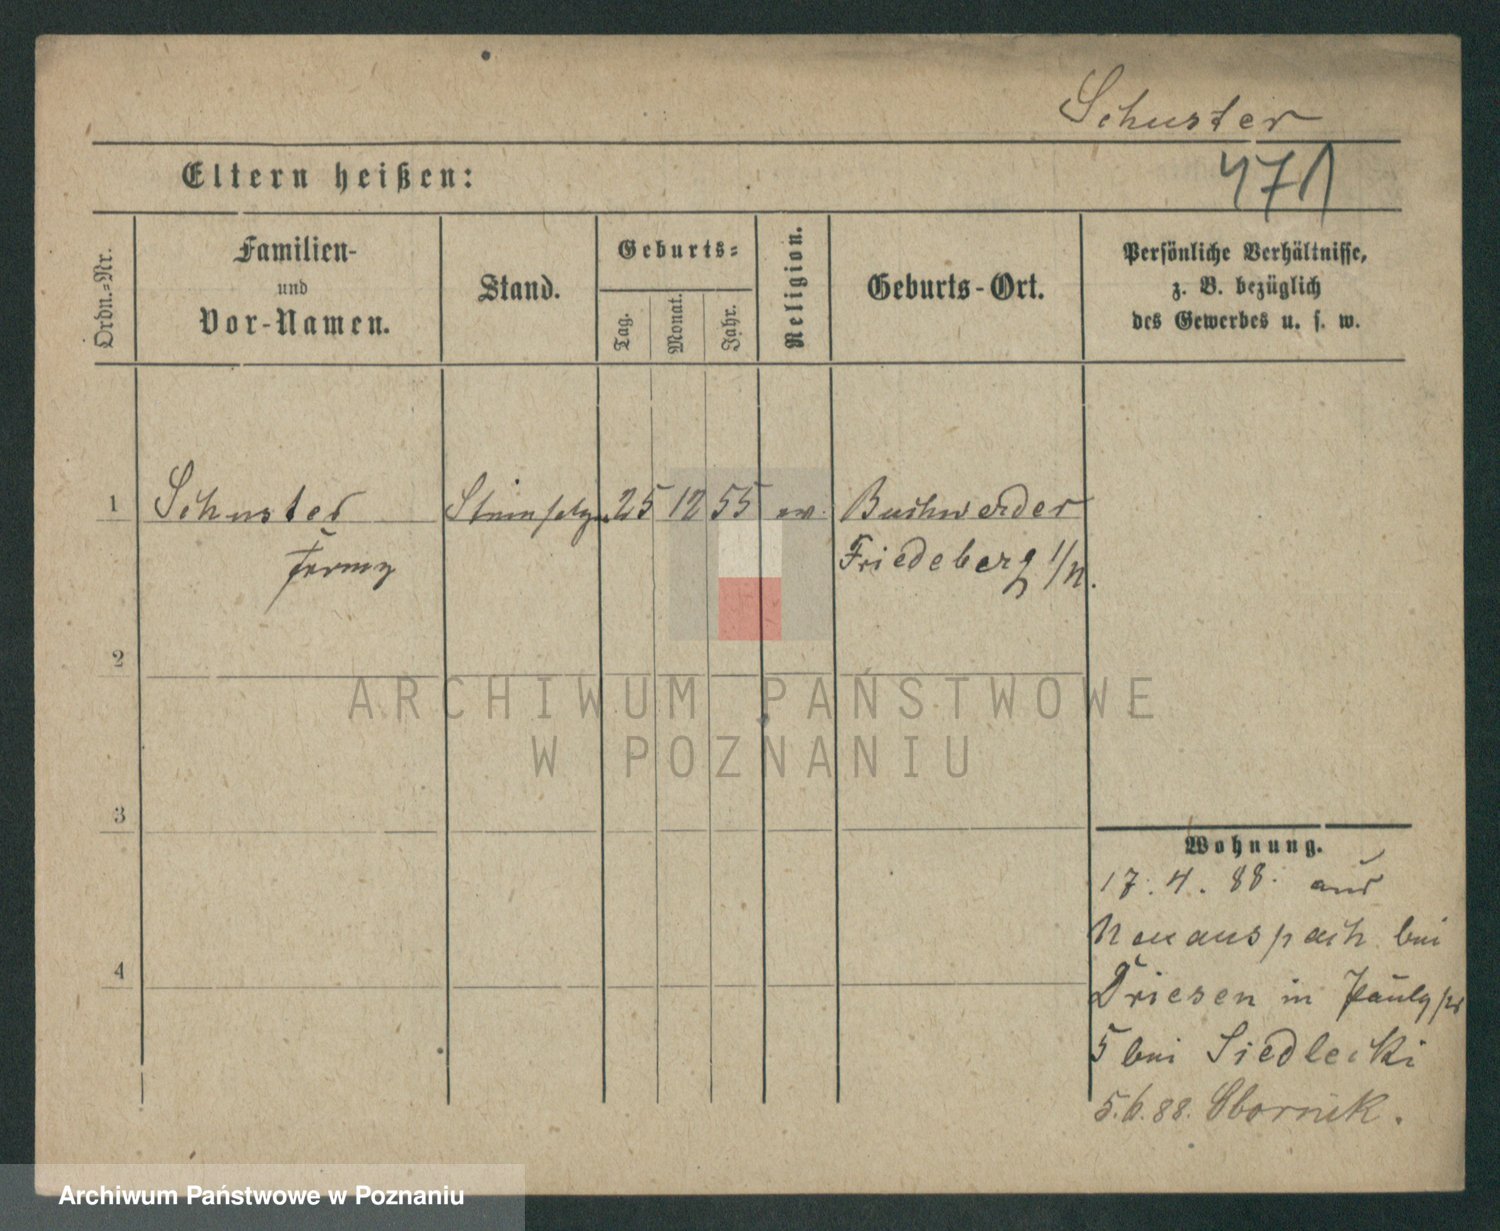 Schuster
471
Eltern heißen:
Ordn.-Nr.
Familien-
und
Vor-Namen.
Stand.
Geburts-
Tag.
Monat.
Jahr.
Religion.
Geburts-Ort.
Persönliche Verhältnisse,
z. B. bezüglich
des Gewerbes u. s. w.
1
Schuster
25 12 55 ev.
Buchwerder
Friedeberg 1/N.
2
3
4
Wohnung.
17. 4. 88. aus
Neuanspach bei
Driesen in
5 bei Siedlecki
5.6.88. Obornik.
ARCHIWUM PAŃSTWOWE
W POZNANIU
Archiwum Państwowe w Poznaniu